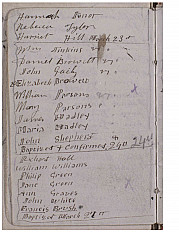 Hannah Bonor
Rebecca Tylor
Harriet Hill March 23rd
John Dinkins
Daniel Browett
John Gaily
Elizabeth Browett
William Parsons
Mary Parsons
James Hadley
Maria Hadley
John Shepherd
Baptized & Confirmed 24th
Richard Hall
William Williams
Philip Green
Jane Green
Ann Graves
John
Francis Brush
Baptized March 27th